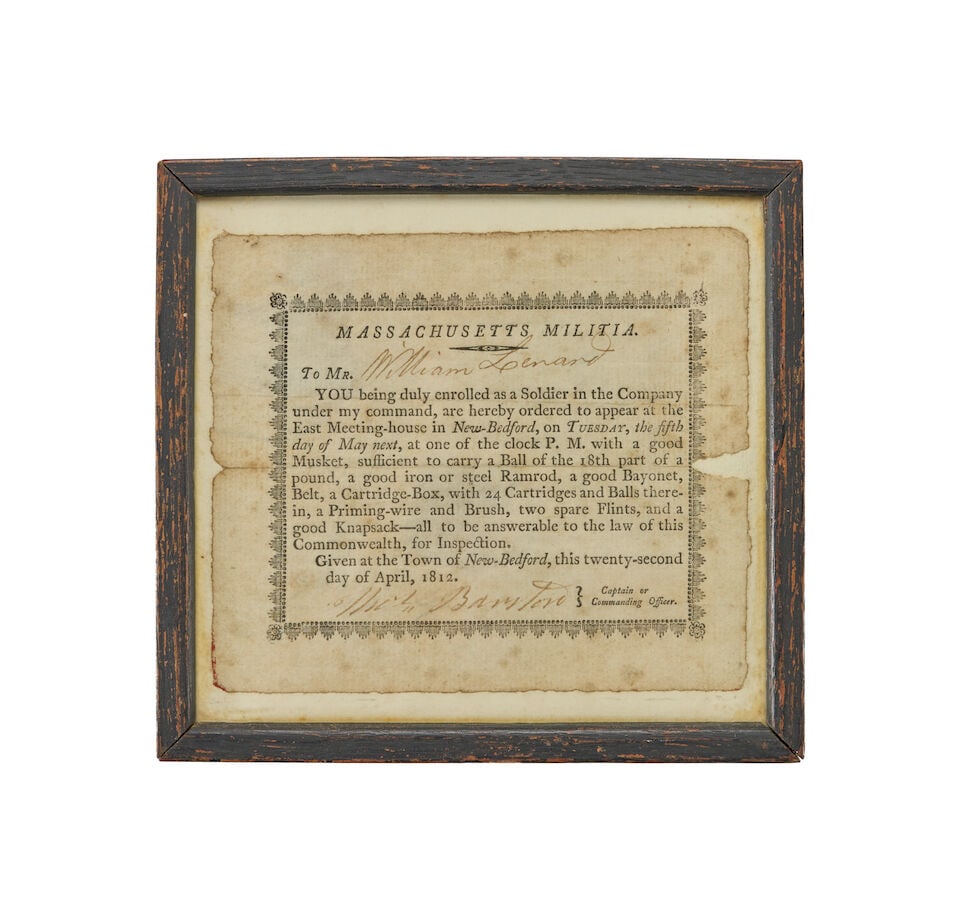 MASSACHUSETTS MILITIA.
To Mr. William Lenard
YOU being duly enrolled as a Soldier in the Company
under my command, are hereby ordered to appear at the
East Meeting-house in New-Bedford, on Tuesday, the fifth
day of May next, at one of the clock P. M. with a good
Musket, sufficient to carry a Ball of the 18th part of a
pound, a good iron or steel Ramrod, a good Bayonet,
Belt, a Cartridge-Box, with 24 Cartridges and Balls there-
in, a Priming-wire and Brush, two spare Flints, and a
good Knapsack—all to be answerable to the law of this
Commonwealth, for Inspection.
Given at the Town of New-Bedford, this twenty-second
day of April, 1812.
Captain or
Commanding Officer.